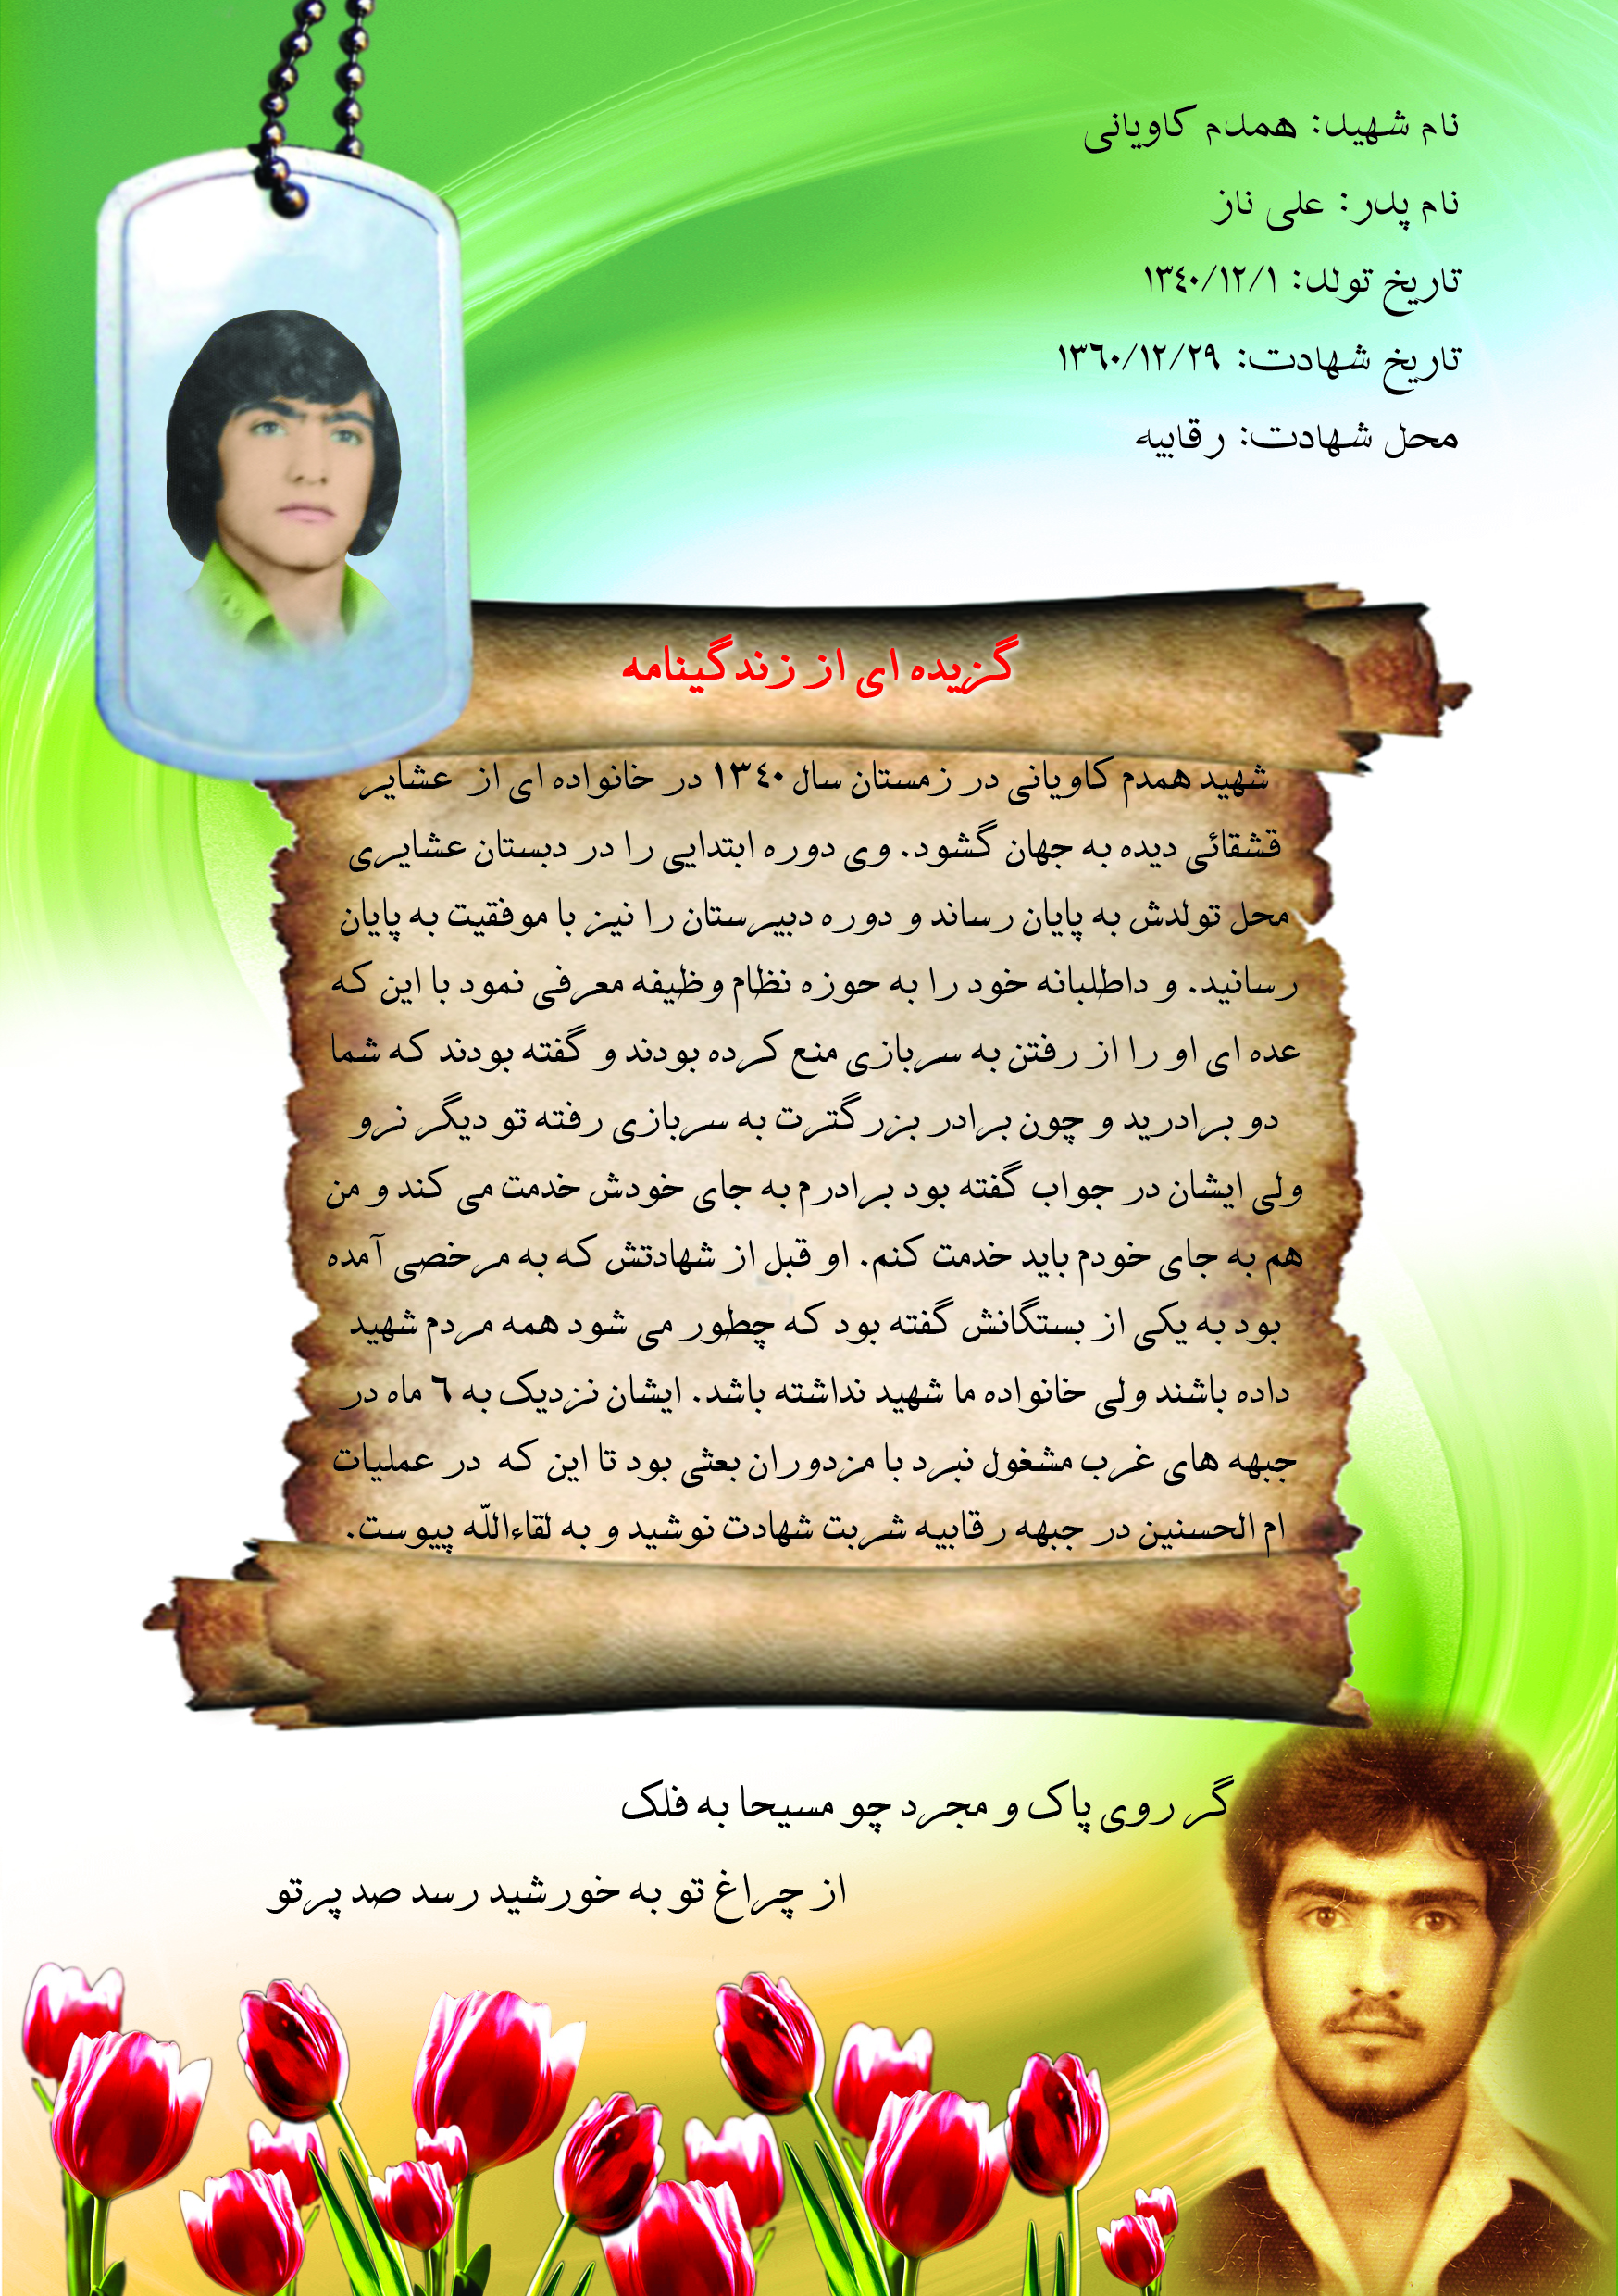 نام شهید: همدم کاویانی
نام پدر: علی ناز
تاریخ تولد: ۱۳٤۰/۱۲/۱
تاریخ شهادت: ۱۳٦۰/۱۲/۲۹
محل شهادت: رقابیه
گزیده ای از زندگینامه
شهید همدم کاویانی در زمستان سال ۱۳٤۰ در خانواده ای از عشایر
قشقائی دیده به جهان گشود. وی دوره ابتدایی را در دبستان عشایری
محل تولدش به پایان رساند و دوره دبیرستان را نیز با موفقیت به پایان
رسانید. و داطلبانه خود را به حوزه نظام وظیفه معرفی نمود با این که
عده ای او را از رفتن به سربازی منع کرده بودند و گفته بودند که شما
دو برادرید و چون برادر بزرگترت به سربازی رفته تو دیگر نرو
ولی ایشان در جواب گفته بود برادرم به جای خودش خدمت می کند و من
هم به جای خودم باید خدمت کنم. او قبل از شهادتش که به مرخصی آمده
بود به یکی از بستگانش گفته بود که چطور می شود همه مردم شهید
داده باشند ولی خانواده ما شهید نداشته باشد. ایشان نزدیک به ٦ ماه در
جبهه های غرب مشغول نبرد با مزدوران بعثی بود تا این که در عملیات
ام الحسنین در جبهه رقابیه شربت شهادت نوشید و به لقاءاللّه پیوست.
گر روی پاک و مجرد چو مسیحا به فلک
از چراغ تو به خورشید رسد صد پرتو